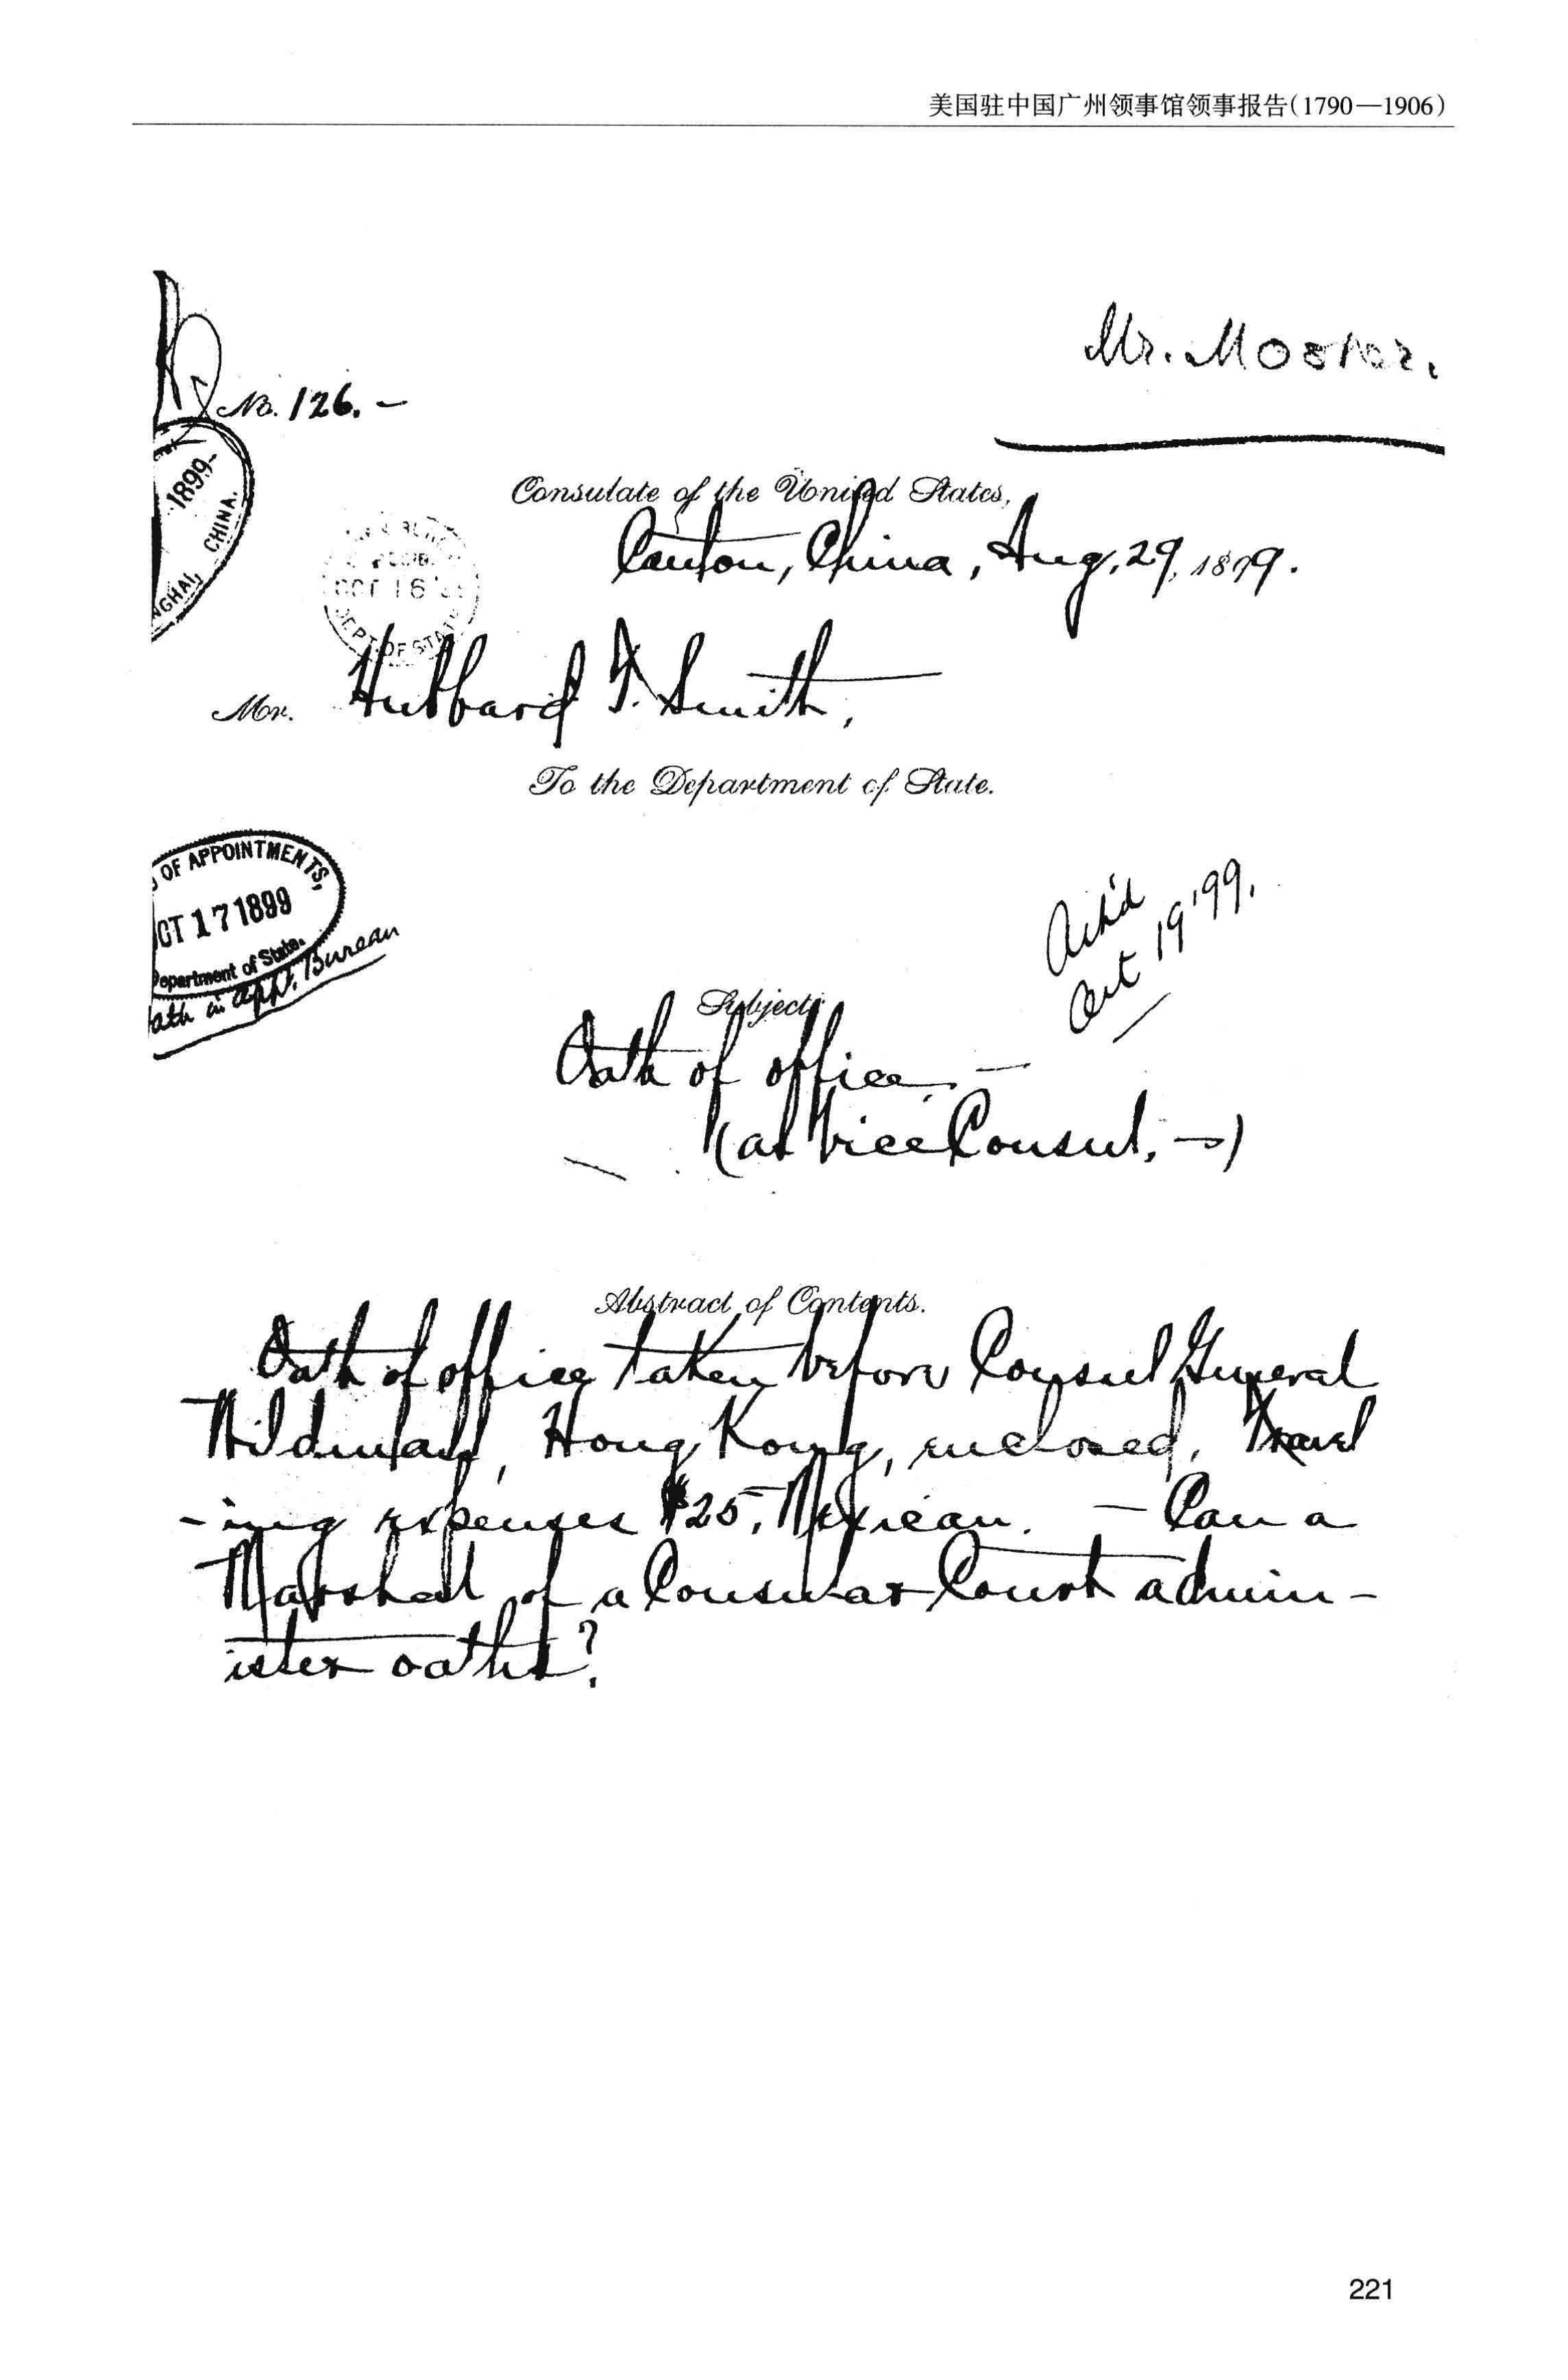 美国驻中国广州领事馆领事报告(1790—1906)
Mr. Mosher.
No. 126. —
1899-
SHANGHAI, CHINA.
Consulate of the United States,
Canton, China, Aug, 29, 1899.
OCT 16
DEPT OF STATE
Mr. Hubbard T. Smith,
To the Department of State.
OF APPOINTMENTS,
OCT 17 1899
Department of State.
Oath in App't. Bureau
Ack'd
Oct 19 '99.
Subject:
Oath of office. —
(as Vice Consul. —)
Abstract of Contents.
Oath of office taken before Consul General
Wildman, Hong Kong, enclosed. Travel
- ing expenses $25, Mexican. — Can a
Marshal of a Consular Court admin -
ister oaths?
221